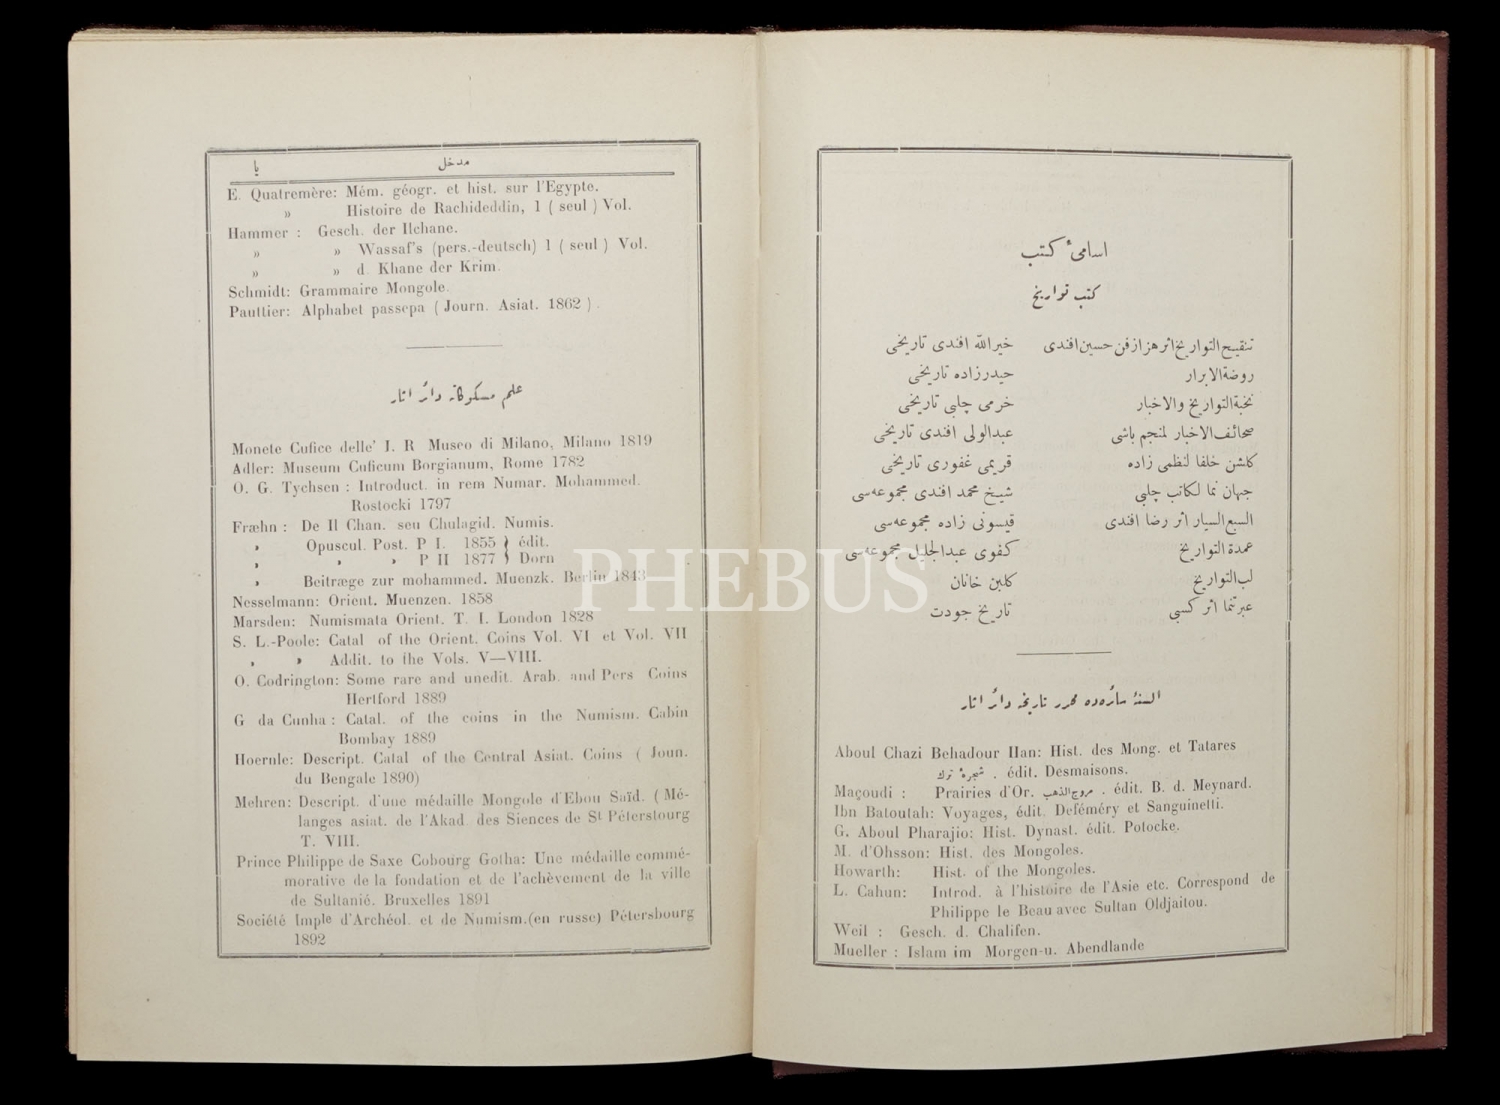 اسامیٔ کتب
کتب تواریخ
تنقیح التواریخ اثر هزارفن حسین افندی
روضة الابرار
نخبة التواریخ والاخبار
صحائف الاخبار لمنجم باشی
کلشن خلفا لنظمی زاده
جهان نما لکاتب چلبی
السبع السیار اثر رضا افندی
عمدة التواریخ
لب التواریخ
عبرتنما اثر کسبی
خیرالله افندی تاریخی
حیدرزاده تاریخی
خرمی چلبی تاریخی
عبدالولی افندی تاریخی
قریمی غفوری تاریخی
شیخ محمد افندی مجموعه‌سی
قیسونی زاده مجموعه‌سی
کفوی عبدالجلیل مجموعه‌سی
کلبن خانان
تاریخ جودت
السنهٔ سائره‌ده محرر تاریخه دائر اثار
Aboul Chazi Behadour Han: Hist. des Mong. et Tatares
شجرهٔ ترك . édit. Desmaisons.
Maçoudi : Prairies d'Or. مروج الذهب . édit. B. d. Meynard.
Ibn Batoutah: Voyages, édit. Deféméry et Sanguinetti.
G. Aboul Pharajio: Hist. Dynast. édit. Potocke.
M. d'Ohsson: Hist. des Mongoles.
Howarth: Hist. of the Mongoles.
L. Cahun: Introd. à l'histoire de l'Asie etc. Correspond de
Philippe le Beau avec Sultan Oldjaitou.
Weil : Gesch. d. Chalifen.
Mueller : Islam im Morgen-u. Abendlande
مدخل یا
E. Quatremère: Mém. géogr. et hist. sur l'Egypte.
» Histoire de Rachideddin, 1 ( seul ) Vol.
Hammer : Gesch. der Ilchane.
» » Wassaf's (pers.-deutsch) 1 ( seul ) Vol.
» » d. Khane der Krim.
Schmidt: Grammaire Mongole.
Pauttier: Alphabet passepa ( Journ. Asiat. 1862 ) .
علم مسکوکاته دائر اثار
Monete Cufice delle' I. R Museo di Milano, Milano 1819
Adler: Museum Cuficum Borgianum, Rome 1782
O. G. Tychsen : Introduct. in rem Numar. Mohammed.
Rostocki 1797
Fræhn : De Il Chan. seu Chulagid. Numis.
, Opuscul. Post. P I. 1855 } édit.
, , , P II 1877 } Dorn
, Beitræge zur mohammed. Muenzk. Berlin 1843
Nesselmann: Orient. Muenzen. 1858
Marsden: Numismata Orient. T. I. London 1828
S. L.-Poole: Catal of the Orient. Coins Vol. VI et Vol. VII
, , Addit. to the Vols. V—VIII.
O. Codrington: Some rare and unedit. Arab. and Pers Coins
Hertford 1889
G da Cunha : Catal. of the coins in the Numism. Cabin
Bombay 1889
Hoernle: Descript. Catal of the Central Asiat. Coins ( Joun.
du Bengale 1890)
Mehren: Descript. d'une médaille Mongole d'Ebou Saïd. ( Mé-
langes asiat. de l'Akad des Siences de St Péterstourg
T. VIII.
Prince Philippe de Saxe Cobourg Gotha: Une médaille commé-
morative de la fondation et de l'achèvement de la ville
de Sultanié. Bruxelles 1891
Société Imple d'Archéol. et de Numism.(en russe) Pétersbourg
1892
PHEBUS